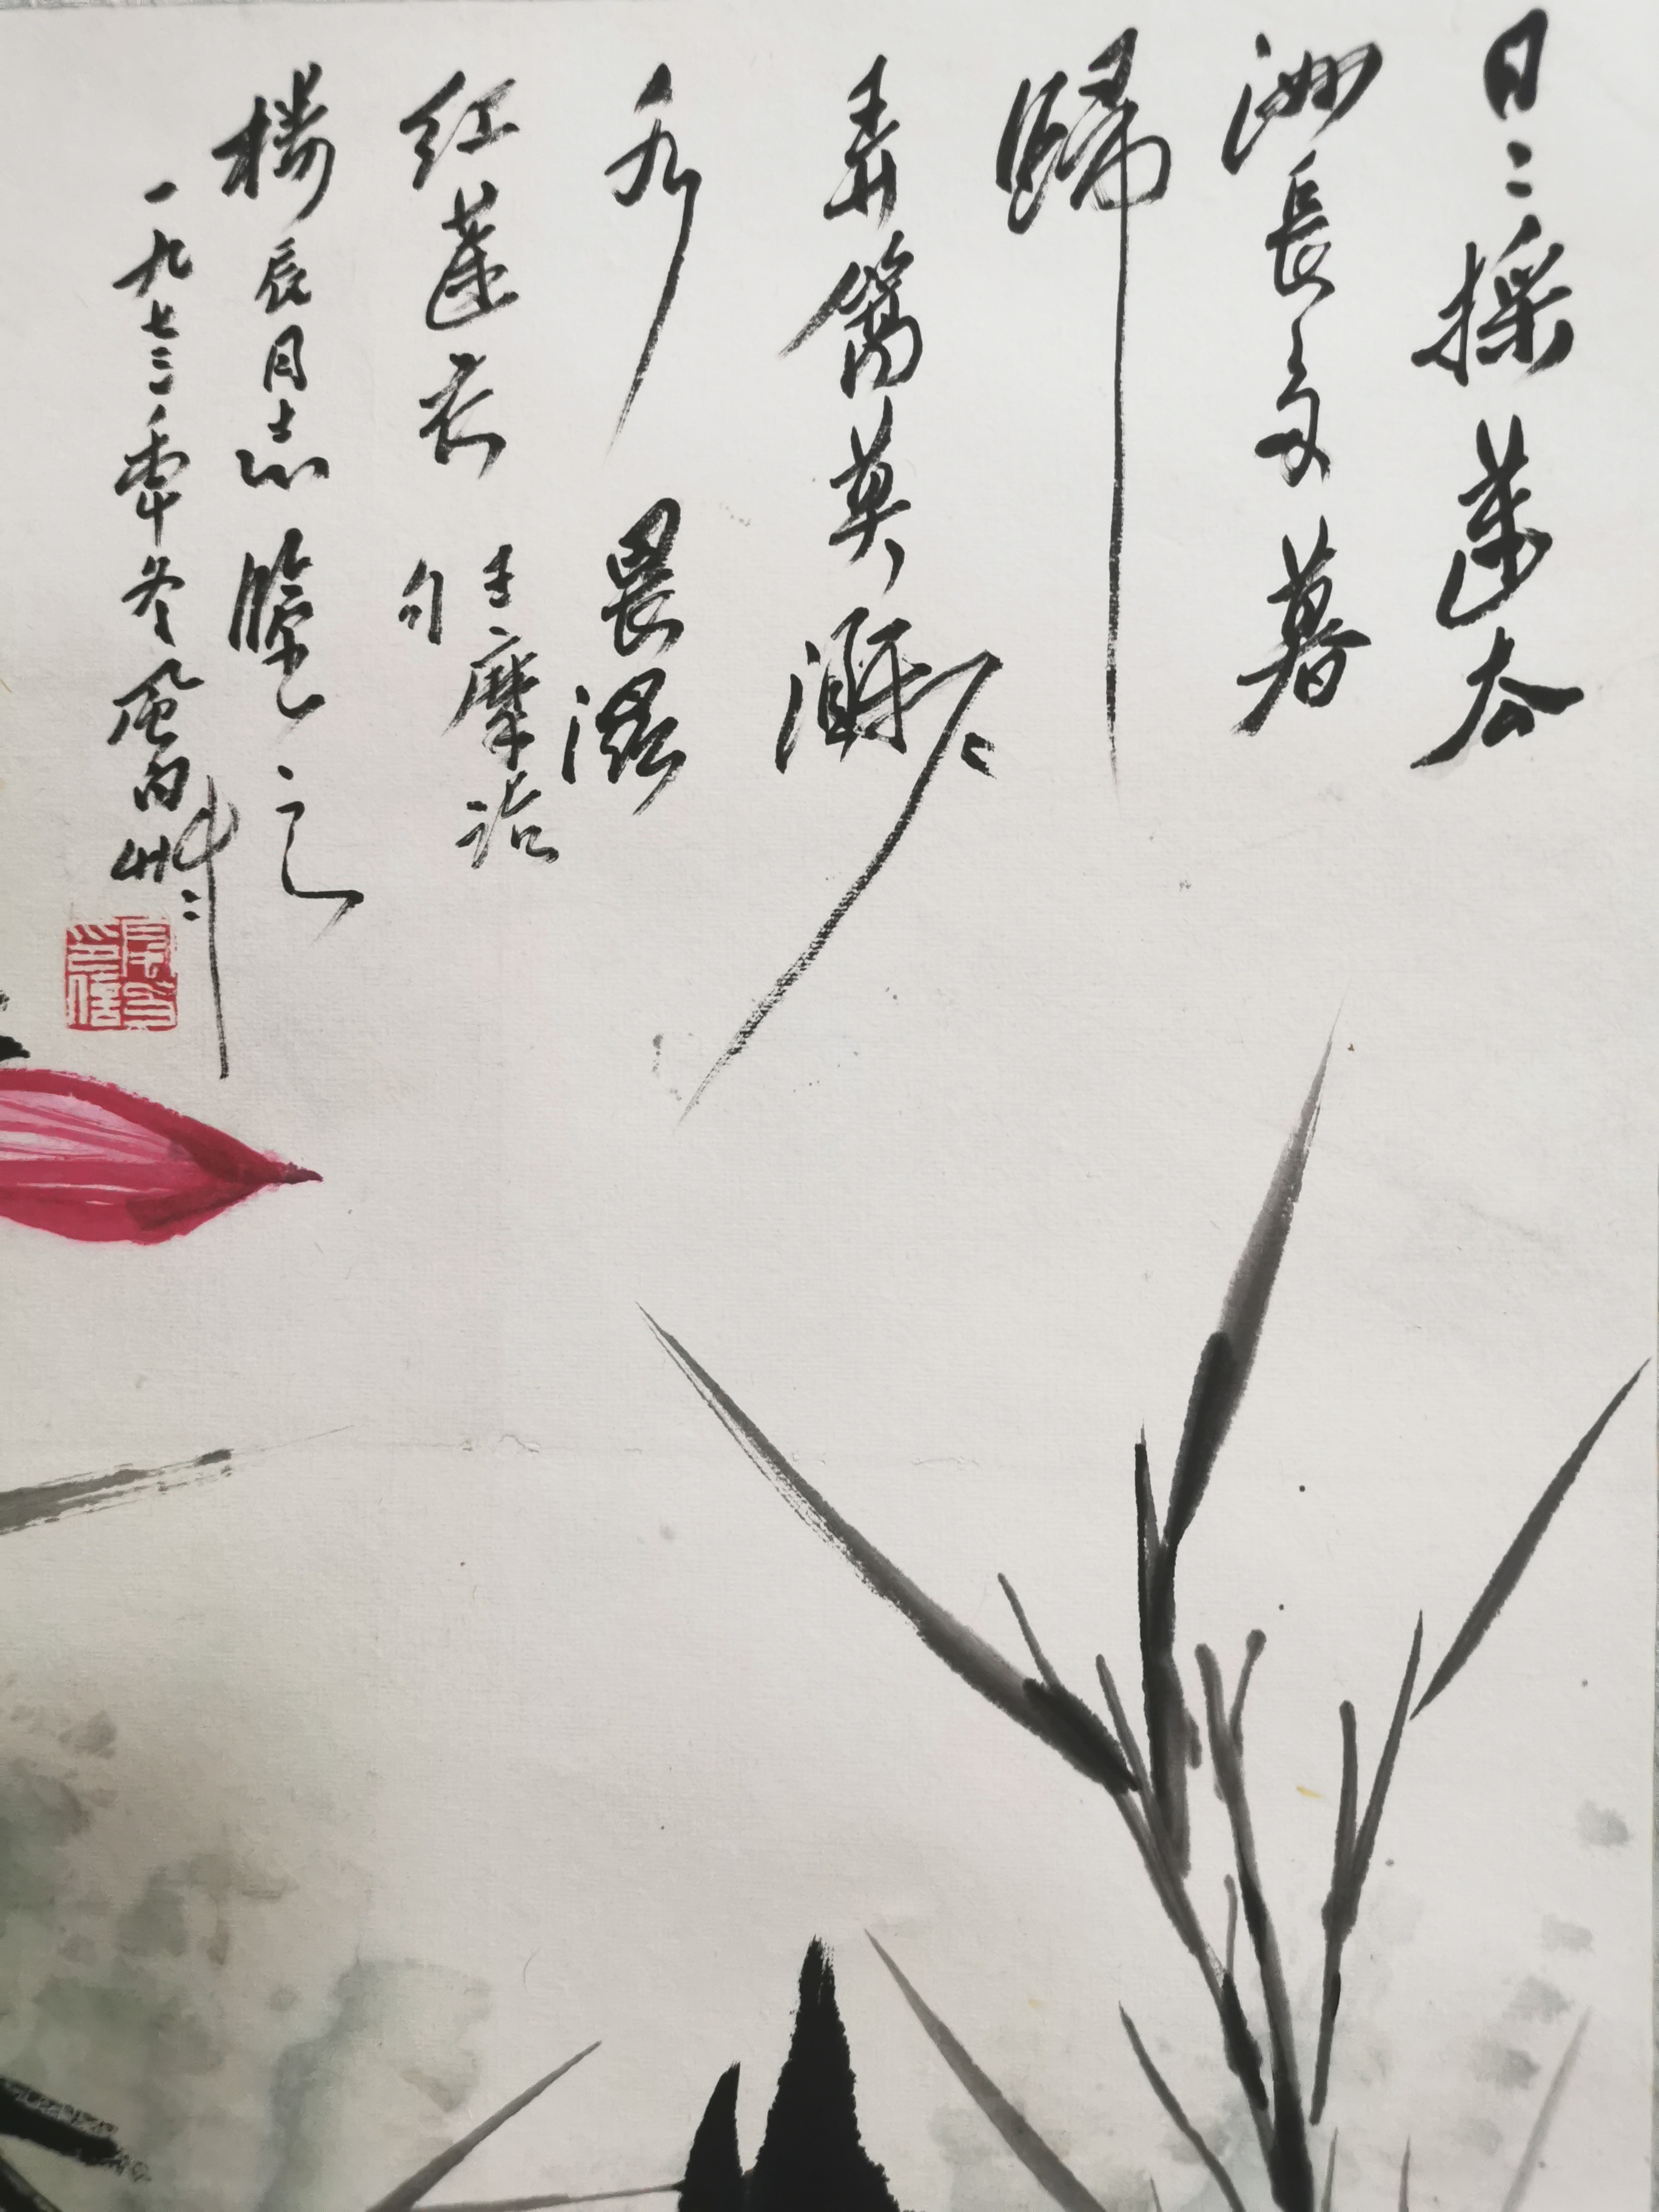 日〻採蓮去
洲長多暮
歸
弄篙莫濺
水 畏濕
紅蓮衣 王摩詰
句
辰同志 之
一九七三年冬